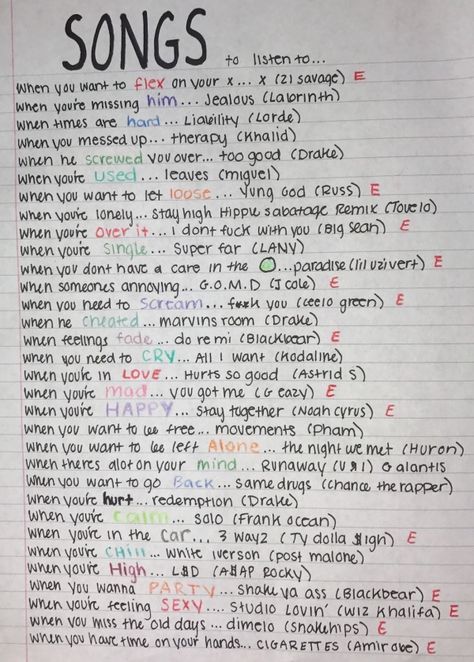 SONGS to listen to...
When you want to flex on your x... x (21 savage) E
When you're missing him... Jealous (Labrinth)
When times are hard... Liability (Lorde)
When you messed up... therapy (Khalid)
When he screwed you over... too good (Drake)
When you're used... leaves (miguel)
When you want to let loose... Yung God (Russ) E
When you're lonely... Stay high Hippie Sabatage Remix (Tove lo)
When you're over it... I dont fuck with you (Big Sean) E
When you're single... Super far (LANY)
When you dont have a care in the ...paradise (lil uzi vert) E
When someones annoying... G.O.M.D (J cole) E
When you need to scream... f**k you (ceelo green) E
When he cheated... marvins room (Drake)
When feelings fade... do re mi (Blackbear) E
When you need to CRY... All I want (Kodaline)
When you're in LOVE... Hurts so good (Astrid S)
When you're mad... you got me (G eazy) E
When you're HAPPY... Stay together (Noah cyrus) E
When you want to be free... movements (Pham)
When you want to be left Alone... the night we met (Huron)
When theres alot on your mind... Runaway (U & I) Galantis
When you want to go Back... same drugs (chance the rapper)
When you're hurt... redemption (Drake)
When you're calm... solo (Frank ocean)
When you're in the car... 3 wayz (TY dolla $igh) E
When you're CHill... white iverson (post malone)
When you're High... L$D (A$AP Rocky)
When you wanna PARTY... shake ya ass (Blackbear) E
When you're feeling SEXY... studio Lovin' (wiz Khalifa) E
When you miss the old days... dimelo (Snakehips) E
When you have time on your hands... CIGARETTES (Amir obe) E